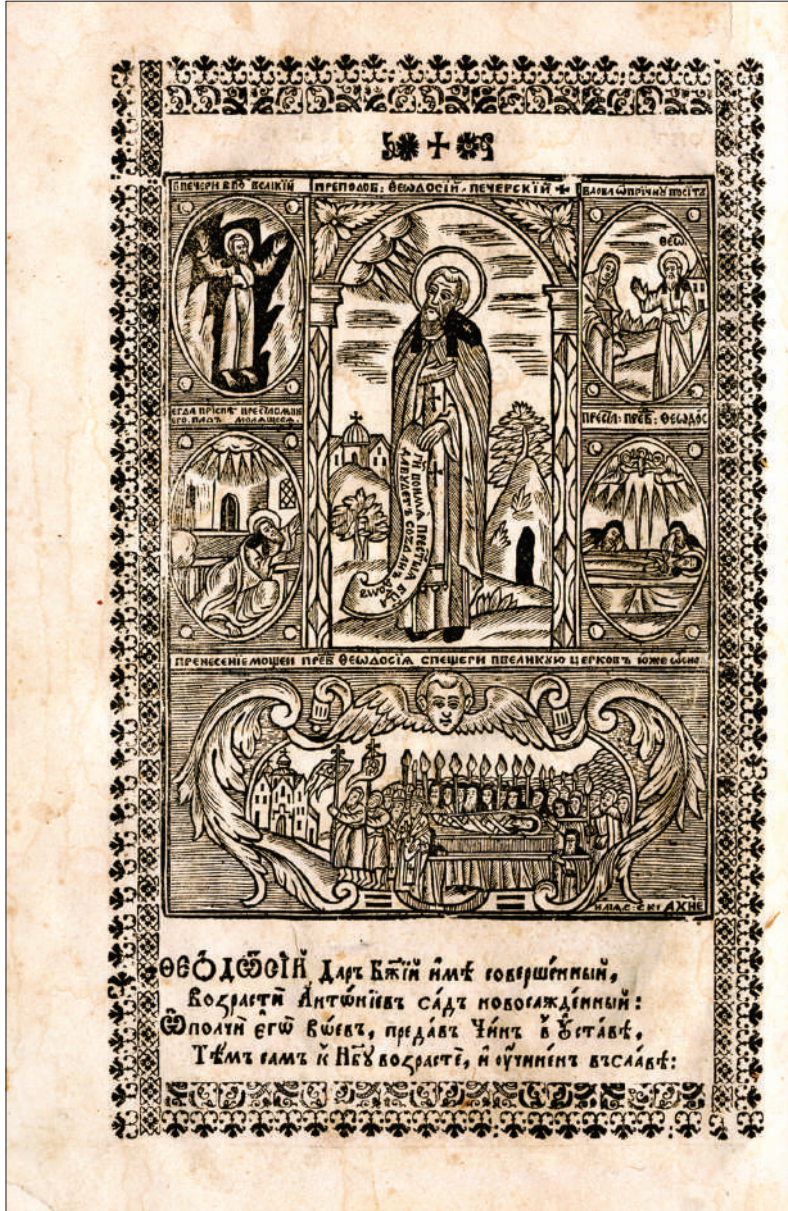 В ПЕЧЕРИ ВПО ВЕЛІКІЙ
ПРЕПОДОБ: ѲЕѠДОСІЙ · ПЕЧЕРСКІЙ
ѲЕѠ
ЕГДА ПРІСПѢ ПРЕСТАВЛ
ЕГО. ПАДЪ МОЛАЩЕСѦ.
ПРЕСТА: ПРЕБ: ѲЕѠДОС
ПРЕНЕСЕНІЕ МОЩЕЙ ПРЕБ ѲЕѠДОСІѦ СПЕЩЕРИ ВВЕЛИКУЮ ЦЕРКОВЪ ЮЖЕ ѠСНО
ИЛІА
АХНЕ
ѲЕО́ДѠ́СІЙ Даръ Бж҃їй и҆мѣ̀ соверше́нный,
Возрастѝ А҆нтѡ́нїевъ са́дъ новосажде́нный:
Ѡ҆полчѝ є҆гѡ̀ вѡ́евъ, преда́въ Чи́нъ в̾ ᲂу҆ста́вѣ,
Тѣ́мъ самъ к̾ Нб҃ꙋ возрастѐ, и҆ ᲂу҆чине́нъ въ сла́вѣ: